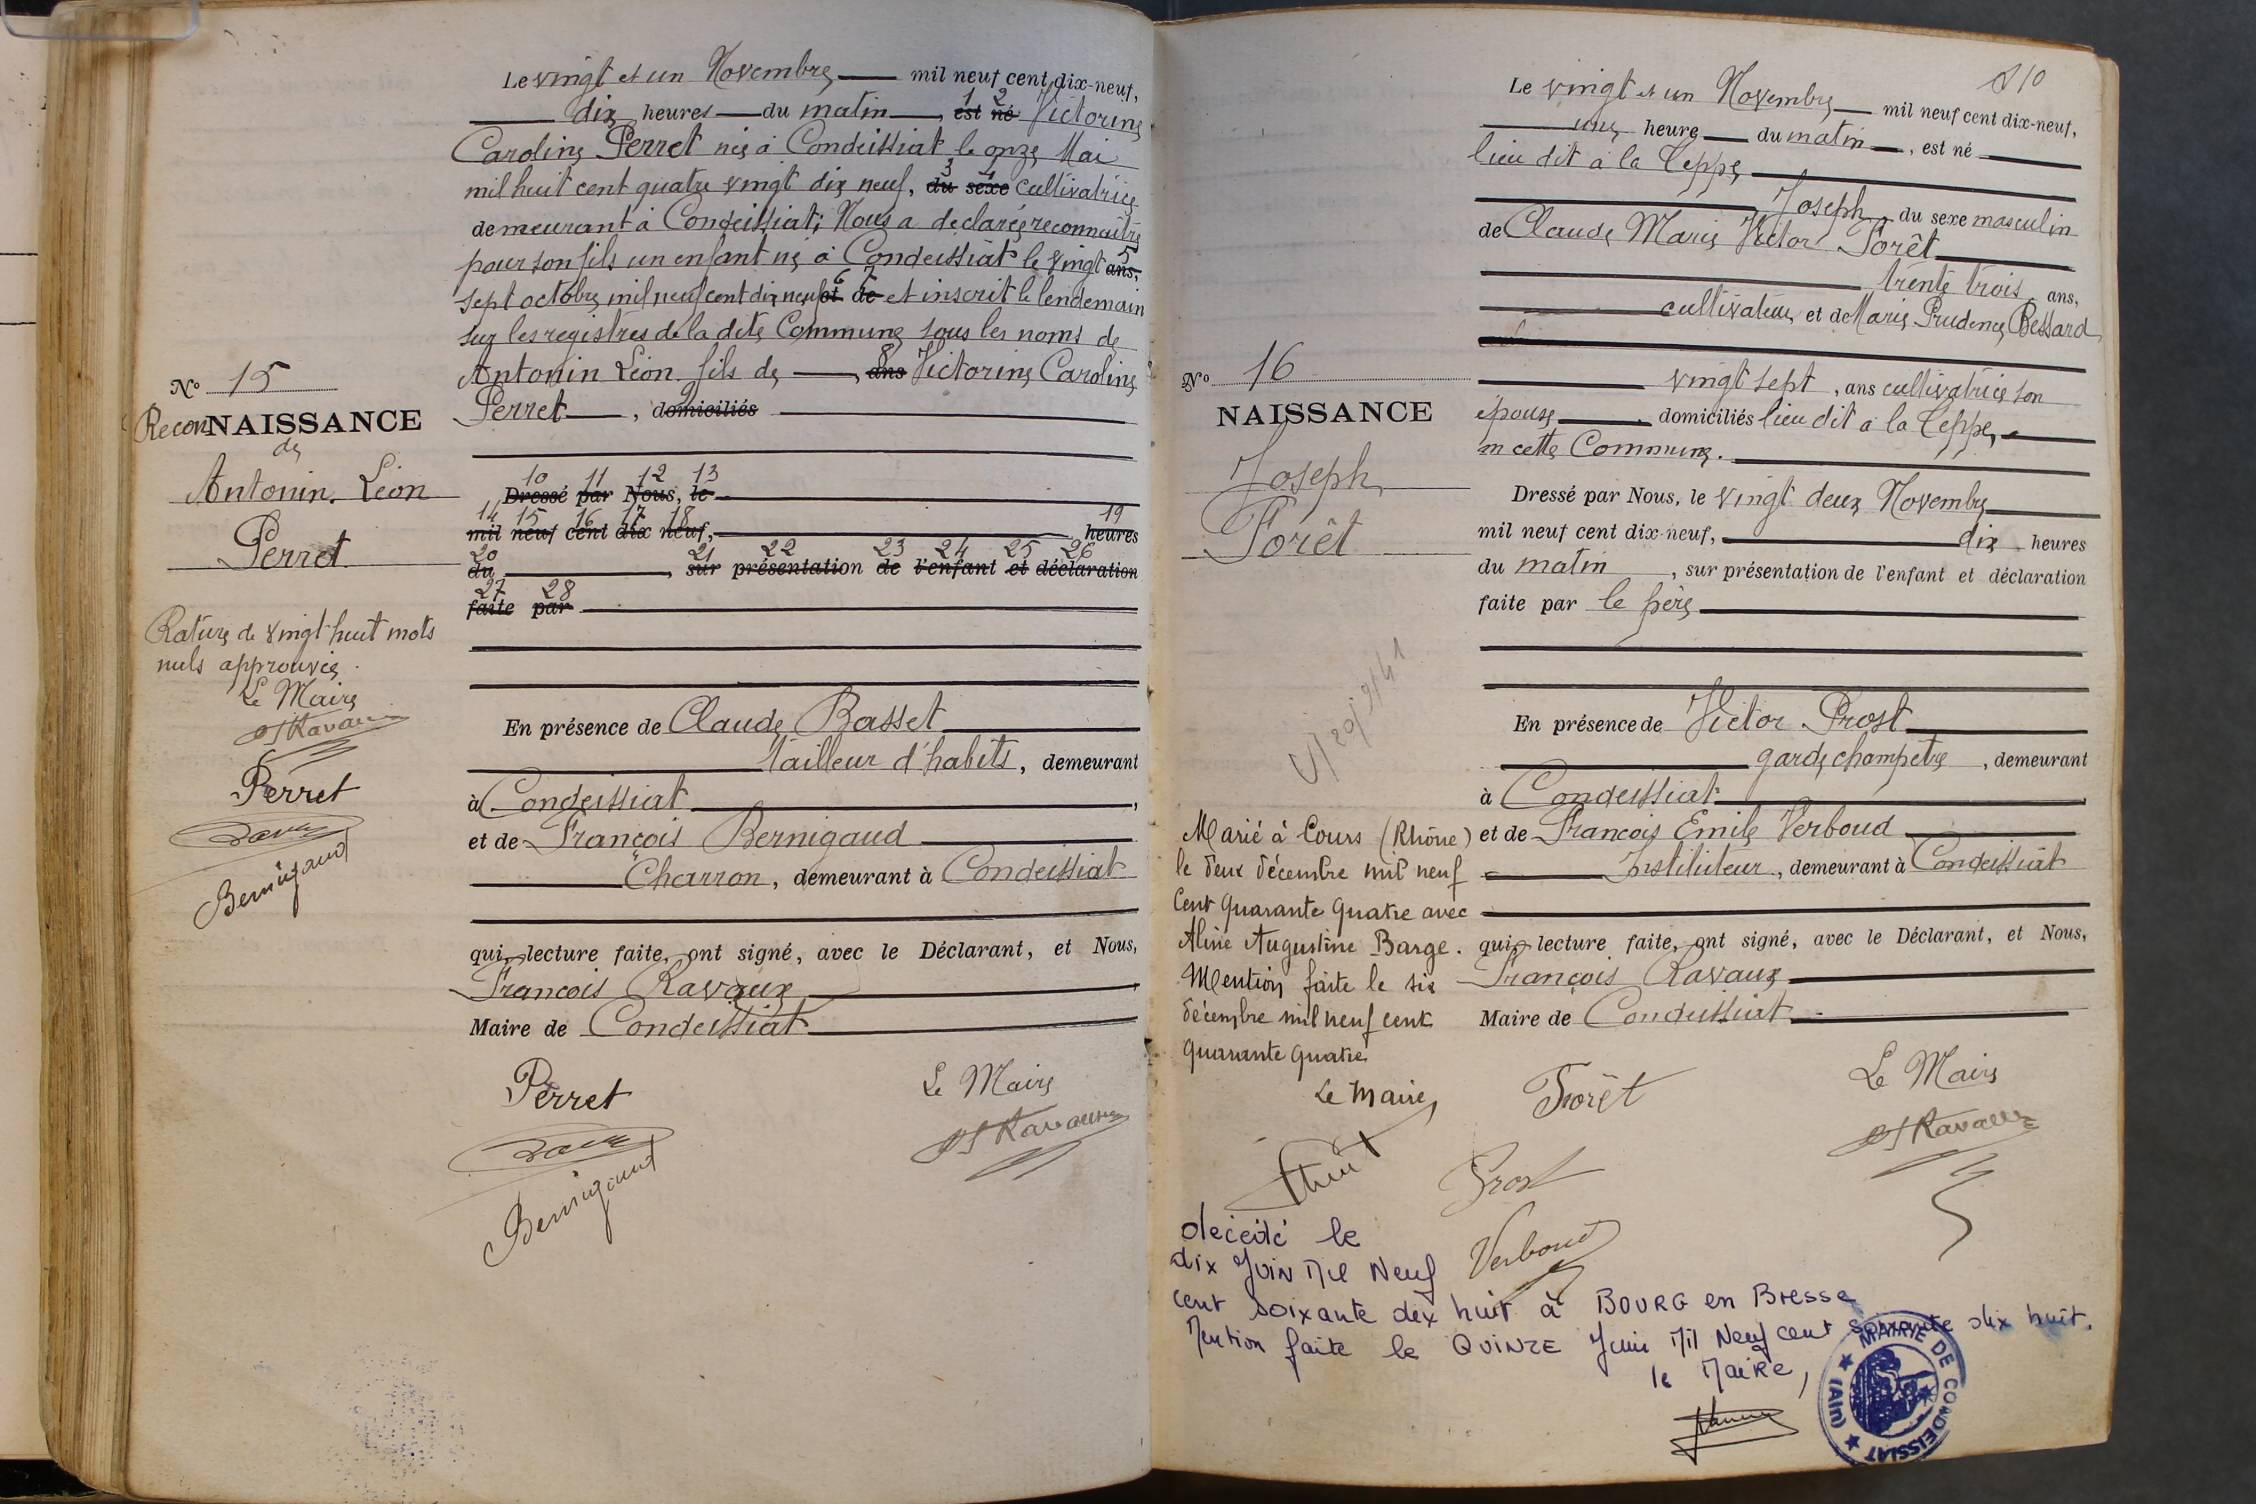 Le vingt et un Novembre mil neuf cent dix-neuf,
dix heures du matin, est né Victorine
1 2
Caroline Perret née à Condeissiat le onze Mai
mil huit cent quatre vingt dix neuf, du sexe cultivatrice
3 4
demeurant à Condeissiat; Nous a declarée reconnaitre
pour son fils un enfant né à Condeissiat le vingt ans,
5
sept octobre mil neuf cent dix neuf et de et inscrit le lendemain
6 7
sur les registres de la dite Commune sous les noms de
Antonin Léon fils de ans Victorine Caroline
8
Perret, domiciliés
No 15
Recon NAISSANCE
de
Antonin Léon
Perret
10 11 12 13
Dressé par Nous, le
14 15 16 17 18 19
mil neuf cent dix neuf, heures
20 21 22 23 24 25 26
du, sur présentation de l'enfant et déclaration
27 28
faite par
Rature de vingt huit mots
nuls approuvée.
Le Maire
Ravaux
Perret
Bernigaud
En présence de Claude Basset
tailleur d'habits, demeurant
à Condeissiat,
et de François Bernigaud
Charron, demeurant à Condeissiat
qui, lecture faite, ont signé, avec le Déclarant, et Nous,
François Ravaux
Maire de Condeissiat
Perret
Le Maire
Ravaux
Bernigaud
10
Le vingt et un Novembre mil neuf cent dix-neuf,
une heure du matin, est né
lieu dit à la Teppe
Joseph, du sexe masculin
de Claude Marie Victor Forêt
trente trois ans,
cultivateur et de Marie Prudence Bessard
vingt sept, ans cultivatrice son
épouse domiciliés lieu dit à la Teppe,
en cette Commune.
No 16
NAISSANCE
Joseph
Forêt
Dressé par Nous, le vingt deux Novembre
mil neuf cent dix-neuf, dix heures
du matin, sur présentation de l'enfant et déclaration
faite par le père
En présence de Victor Prost
garde champetre, demeurant
à Condeissiat
et de François Emile Verboud
Instituteur, demeurant à Condeissiat
qui, lecture faite, ont signé, avec le Déclarant, et Nous,
François Ravaux
Maire de Condeissiat
Forêt
Le Maire
Ravaux
Prost
Verboud
Marié à Cours (Rhône)
le deux décembre mil neuf
Cent quarante quatre avec
Aline Augustine Barge.
Mention faite le six
décembre mil neuf cent
quarante quatre
Le Maire,
décédé le
dix Juin Mil Neuf
cent soixante dix huit à BOURG en Bresse
Mention faite le QUINZE Juin Mil Neuf cent soixante dix huit.
le Maire,
MAIRIE DE CONDEISSIAT
(AIN)